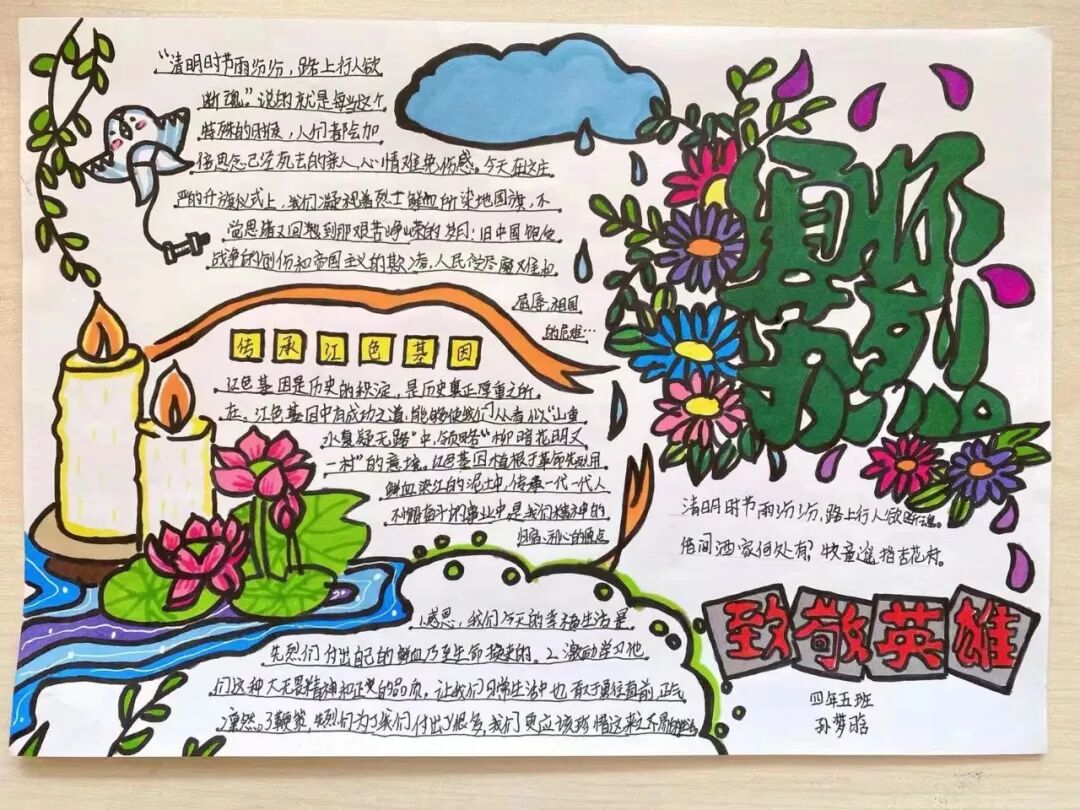 “清明时节雨纷纷，路上行人欲
断魂。”说的就是每当这个
特殊的时候，人们都会加
倍思念已经死去的亲人，心情难免伤感。今天在这庄
严的升旗仪式上，我们凝视着烈士鲜血所染地国旗，不
觉思绪又回到那艰苦峥嵘的岁月：旧中国饱受
战争的创伤和帝国主义的欺凌，人民受尽
屈辱、祖国
的危难…
缅怀
先烈
传承红色基因
红色基因是历史的积淀，是历史真正厚重之所
在。红色基因中有成功之道，能够使我们从看似“山重
水复疑无路”中，领略“柳暗花明又
一村”的意境。红色基因植根于革命先烈用
鲜血染红的泥土中，传承一代一代人
不懈奋斗的事业中，是我们精神的
归宿、初心的原点
清明时节雨纷纷，路上行人欲断魂。
借问酒家何处有？牧童遥指杏花村。
致敬英雄
四年五班
孙梦晗
1.感恩，我们今天的幸福生活是
先烈们付出自己的鲜血乃至生命换来的。2.激励学习他
们这种大无畏精神和正义的品质，让我们日常生活中也敢于勇往直前，正气
凛然。3.鞭策，先烈们为了我们付出了很多，我们更应该珍惜这来之不易的